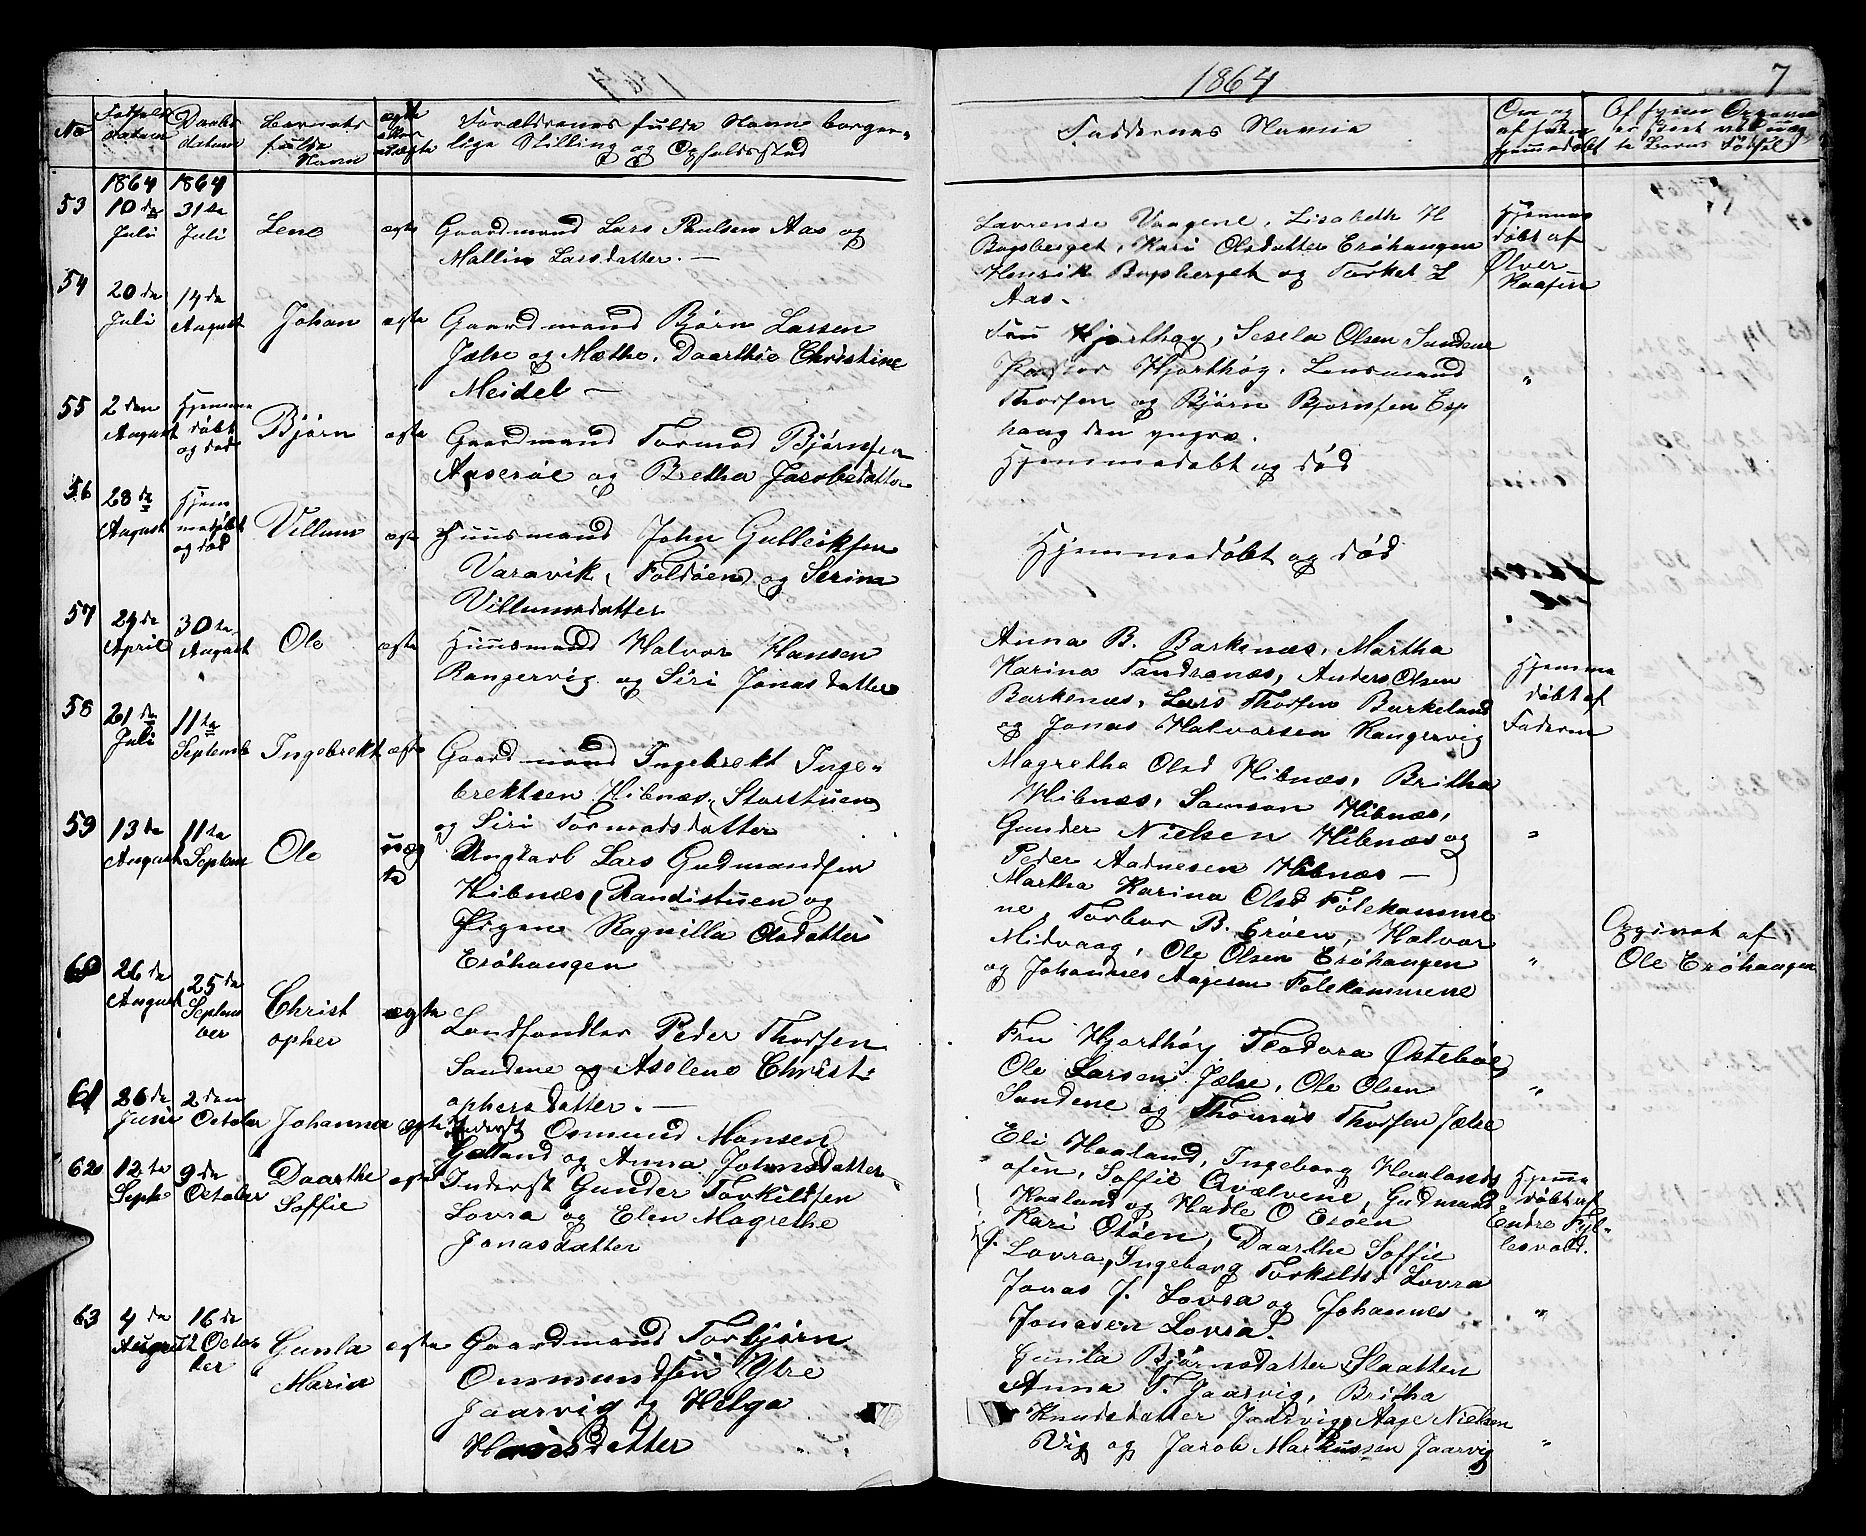 1864
7
No
Fødsels
datum
Daabs
datum
Barnets
fulde
Navn
ægte
eller
uægte
Forældrenes fulde Navn borger-
lige Stilling og Opholdssted
Faddernes Navne
Om og
af hvem
hjemmedøbt
Af hvem Opgave
er skeet ved uæg
te Børns Fødsel
1864
1864
53
10 de
Juli
31 te
Juli
Lene
ægte
Gaardmand Lars Paulsen Aas og
Mallin Larsdatter. —
Lavrense Vaagene, Lisabeth H
Bogsberget, Kari Olsdatter Erøhaugen
Henrik Bogsberget og Torkel L
Aas.
Hjemme
døbt af
Ølver
54
20 de
Juli
14 de
August
Johan
ægte
Gaardmand Bjørn Larsen
Jælse og Mæthe Daarthie Christine
Meidel —
Fru Hjorthøy, Sesela Olsen Sandene
Pastor Hjorthøy, Lensmand
Thorsen og Bjørn Bjørnsen Esp
haug den yngre.
"
55
2 den
August
Hjemme
døbt
og død
Bjørn
ægte
Gaardmand Tormod Bjørnsen
Aaserøe og Bretha Jacobsdatter
Hjemmedøbt og død
56
28 de
August
Hjem
medøbt
og død
Villum
ægte
Huusmand John Gulleiksen
Varavik, Foldøen og Serina
Villumsdatter
Hjemmedøbt og død
57
24 de
April
30 te
August
Ole
ægte
Huusmand Halvor Hansen
Rangervig og Siri Jonasdatter
Anna B. Barkenæs, Martha
Karina Tandranæs, Anders Olsen
Barkenæs, Lars Thorsen Barkeland
og Jonas Halvorsen Rangervig
Hjemme
døbt af
Faderen
58
21 de
Juli
11 te
Septemb
Ingebrekt
ægte
Gaardmand Ingebrekt Inge-
brektsen Hibnæs, Storstuen
og Siri Tormodsdatter
Magretha Olsd Hibnæs, Britha
Hibnæs, Samson Hibnæs,
Gunder Nielsen Hibnæs og
Peder Aadnesen Hibnæs —
"
59
13 de
August
11 te
Septem
Ole
uæg
te
Ungkarl Lars Gudmandsen
Hibnæs (Randistuen og
Pigen Ragnilla Olsdatter
Erøhaugen
Martha Karina Olsd Følekamme
ne, Torbor B. Erøen, Halvor
Midvaag, Ole Olsen Erøhaugen
og Johannes Aagesen Folekammene
"
Opgivet af
Ole Erøhaugen
60
26 de
August
25 de
Septem
ber
Christ
opher
ægte
Landhandler Peder Thorsen
Sandene og Aselene Christ-
ophersdatter. —
Fru Hjorthøy Teodora Østebøe
Ole Larsen Jælse, Ole Olsen
Sandene og Thomas Thorsen Jælse
"
61
26 de
Juni
2 den
October
Johanna
ægte
Inderst Osmund Monsen
Galland og Anna Johnsdatter
Eli Haaland, Ingeborg Haalands
osen, Soffie Qvalvene, Gudmund
Haaland og Hadle O Erøen
Hjemme
døbt af
Endre Fyl-
lesvold.
62
12 te
Septb
9 de
October
Daarthe
Soffie
ægte
Inderst Gunder Torkildsen
Lovra og Elen Magrethe
Jonasdatter
Kari Oløen, Daarthe Soffie
J. Lovra, Ingeborg Torkildsd Lovra
Jonas J. Lovra og Johannes
Jonasen Lovra.
"
63
4 de
August
16 de
Octo-
ber
Gunla
Maria
ægte
Gaardmand Torbjørn
Ommundsen Ytre
Jaarvig og Helga
Hansdatter
Gunla Bjørnsdatter Slaatten
Anna T. Jaarvig, Britha
Knudsdatter Jaarvig, Aage Nielsen
Vig og Jacob Markussen Jaarvig
"